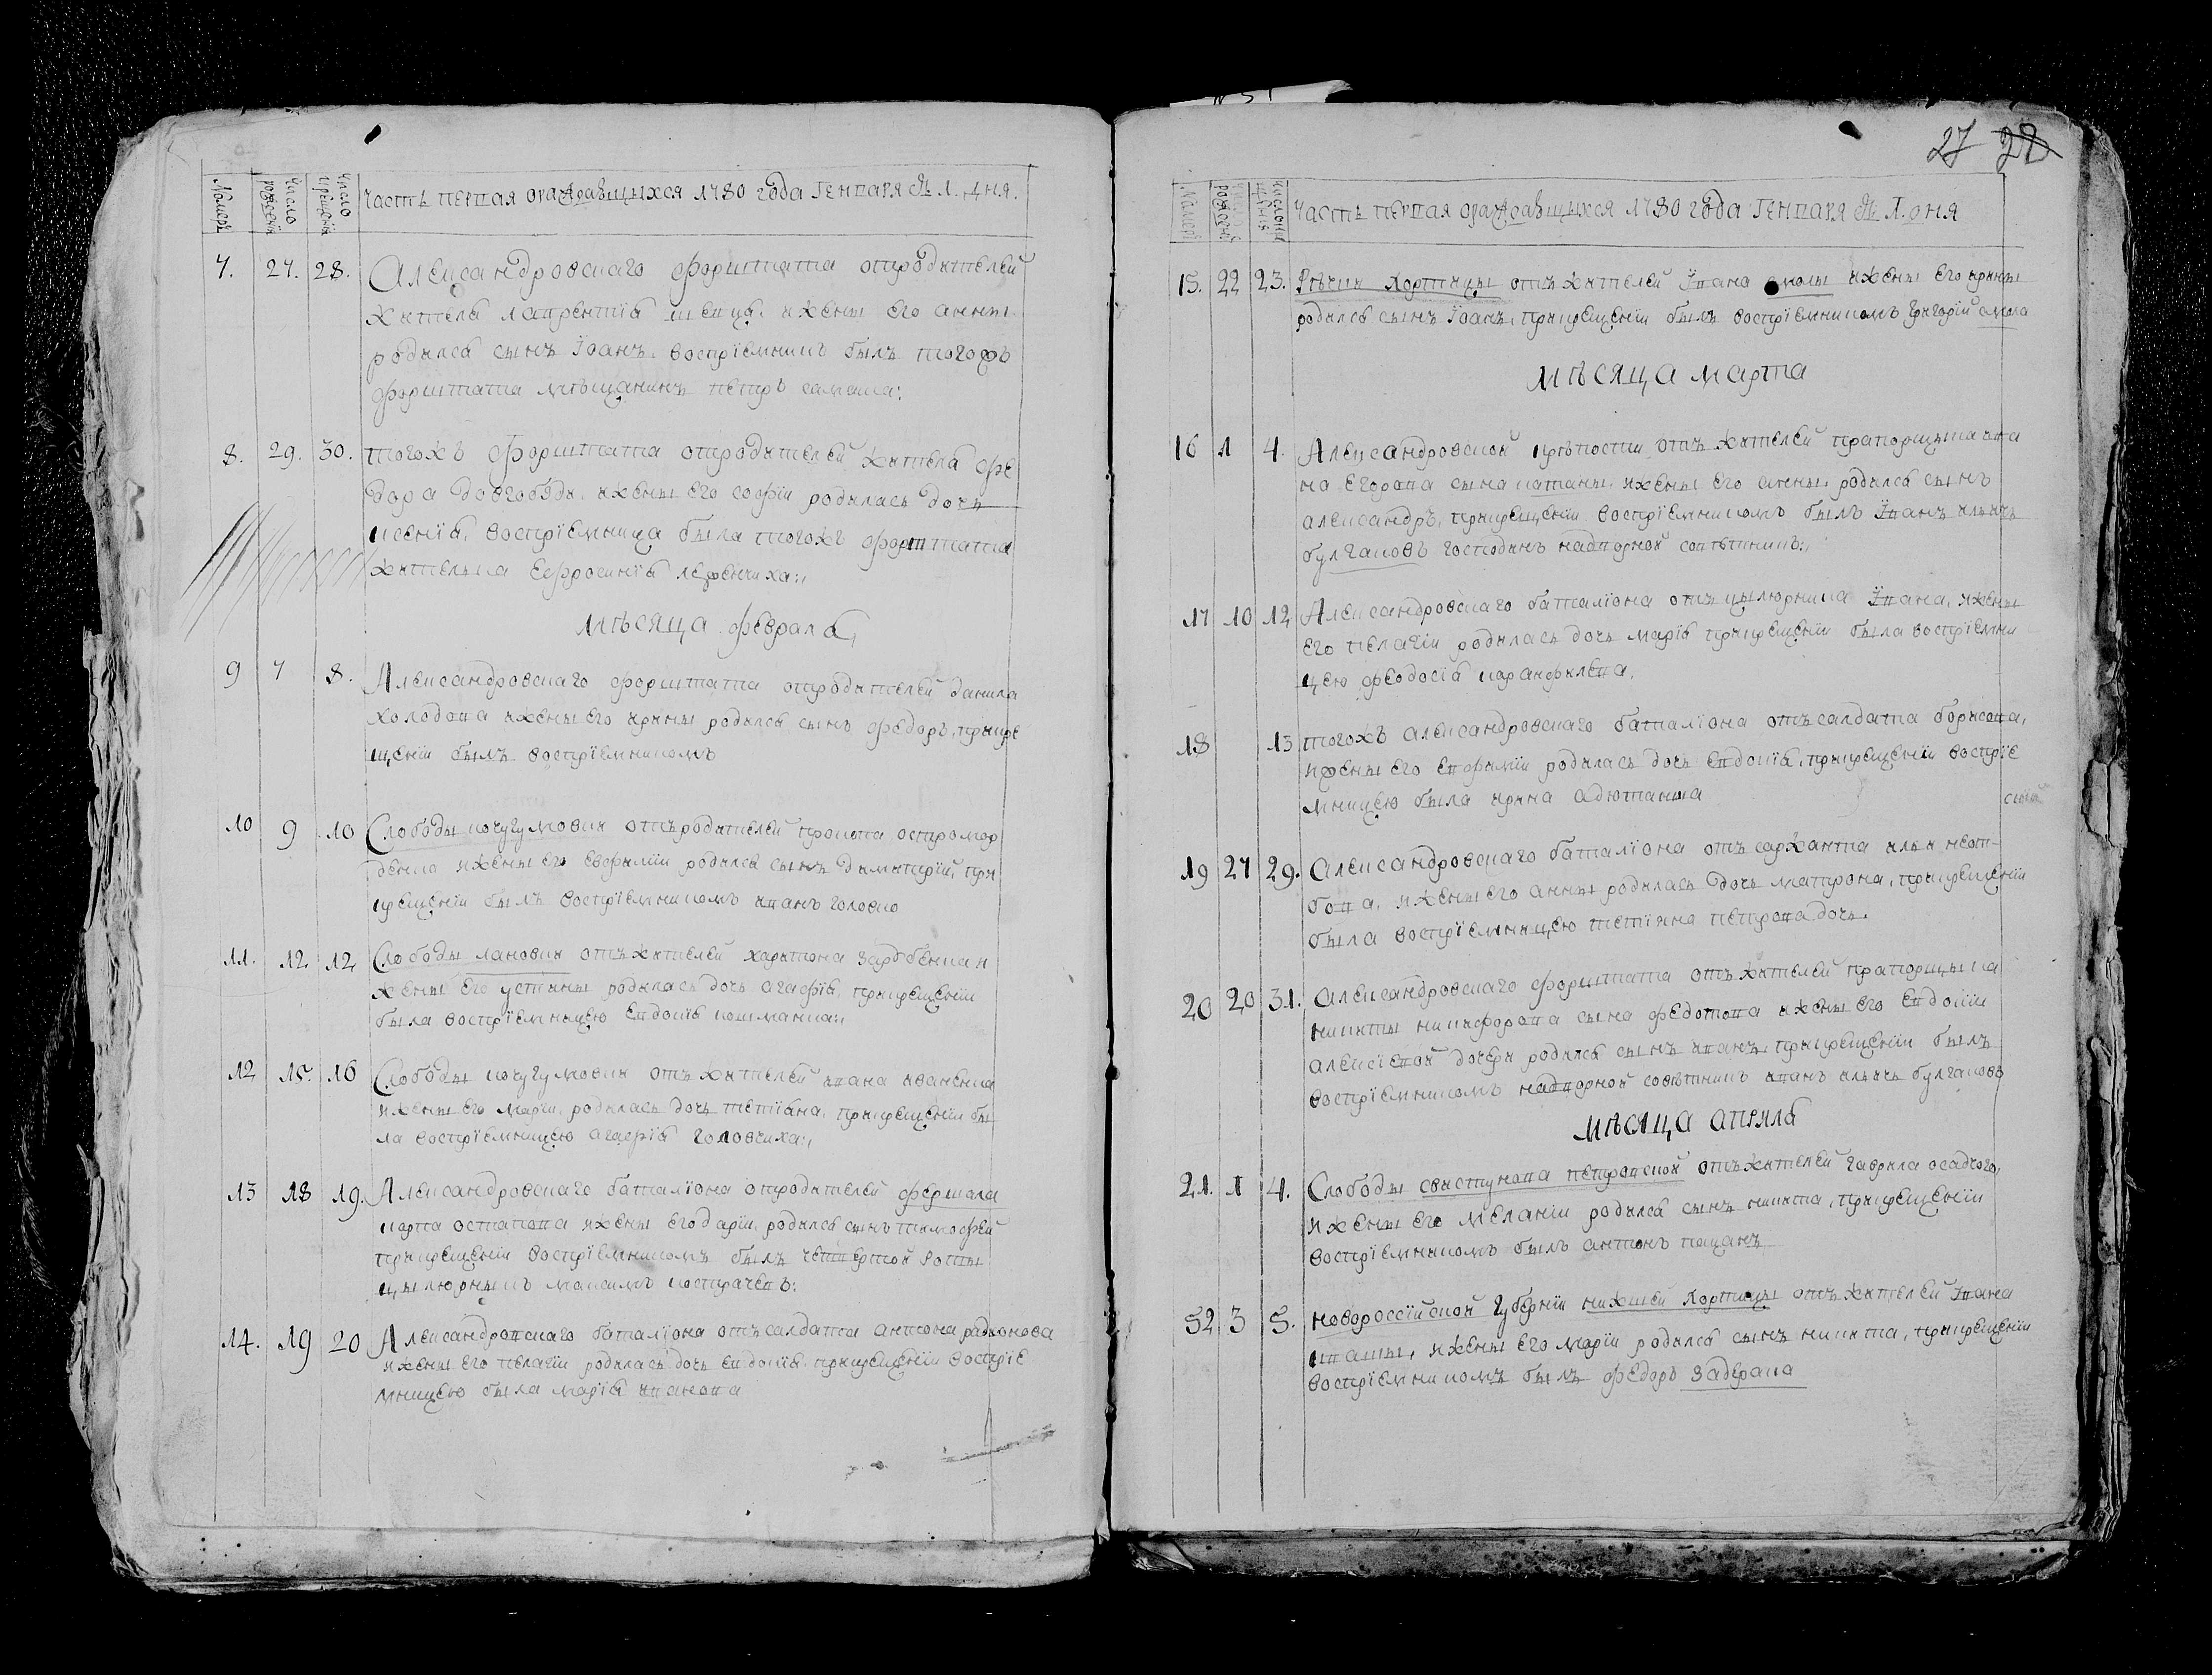 № 51
27 28
Номеръ
число рожденій
число крещенія
Часть первая оражdавшихся 1780 года Генваря съ 1. дня.
7. 27. 28. Александровскаго форштата отродителей
жителя лаврентія швеца.ижены его анны
родился сынъ Іоанъ. воспріемникъ былъ тогожъ
форштата мѣщанинъ петръ
8. 29. 30. тогожъ форштата отродителей жителя фе
дора довгобѣди. ижены его софіи родилась дочь
ксенія, воспріемница была тогожъ форштата
жителька Ефросинія
мѣсяца февраля
9 7 8. Александровскаго форштата отродителей данила
холодова ижены его ирины родился сынъ федоръ, прикре
щеніи былъ воспріемникомъ
10 9 10 Слободы кочугумовки отъродителей прокопа остромор
денка ижены его евфиміи родился сынъ димитрій, при
крещеніи былъ воспріемникомъ иванъ головко
11. 12 12 Слободы лановки отъжителей харитона и
жены его устины родилась дочь агафія прикрещеніи
была воспріемницею Евдокія кошманка:,
12 15. 16 Слободы кочугумовки отъ жителей ивана иваненка
ижены его маріи, родилась дочь тетіяна, прикрещеніи бы
ла воспріемницею агафія головчиха:,
13 18 19. Александровскаго баталіона отродителей фершала
карпа остапова ижены его даріи, родился сынъ тимофей
прикрещеніи воспріемникомъ былъ четвертой роты
цылюрникъ максимъ кострачевъ:
14. 19 20 Александровскаго баталіона отъсалдата антона радионова
ижены его пелагіи родилась дочь евдокія прикрещеніи воспріе
мницею была марія иванова
Номеръ
число рожденій
число крещенія
Часть первая оражdавшихся 1780 года Генваря съ 1. дня
15. 22 23. Рѣчки Хортицы отъжителей Івана смолы ижены его ирины
родился сынъ Іоанъ, прикрещеніи былъ воспріемникомъ григорій смола
мѣсяца марта
16 1 4. Александровской крѣпости отъ жителей прапорщика ива
на Егорова сына катаны ижены его анны родился сынъ
александръ, прикрещеніи воспріемникомъ былъ Іванъ иличъ
булгаковъ господинъ надворной совѣтникъ:,
17 10 12 Александровскаго баталіона отъ цылюрника Івана, ижены
его пелагіи родилась дочь марія прикрещеніи была воспріемни
цею феодосія парамфилева.
18 13 тогожъ александровскаго баталіона отъсалдата борисова,
ижены его Евфиміи родилась дочь Евдокія, прикрещеніи воспріе
мницею была ирина адютанша
19 27 29. Александровскаго баталіона отъ саржанта ильи неот-
бова, ижены его анны родилась дочь матрона, прикрещеніи
была воспріемницею тетіяна петрова дочь.
20 20 31. Александровскаго форштата отъжителей прапорщика
никиты никифорова сына федотова ижены его Евдокіи
алексіевой дочери родился сынъ иванъ прикрещеніи былъ
воспріемникомъ надворной совѣтникъ иванъ иличъ булгаковъ
мѣсяца апрѣля
21. 1 4. Слободы свистунова петровской отъжителей гаврила осадчого,
ижены его меланіи родился сынъ никита, прикрещеніи
воспріемникомъ былъ антонъ пацанъ
52 3 5. новороссійской губерніи нижшей Хортицы отъжителей Івана
квашы, ижены его маріи родился сынъ никита, прикрещеніи
воспріемникомъ былъ федоръ задерака